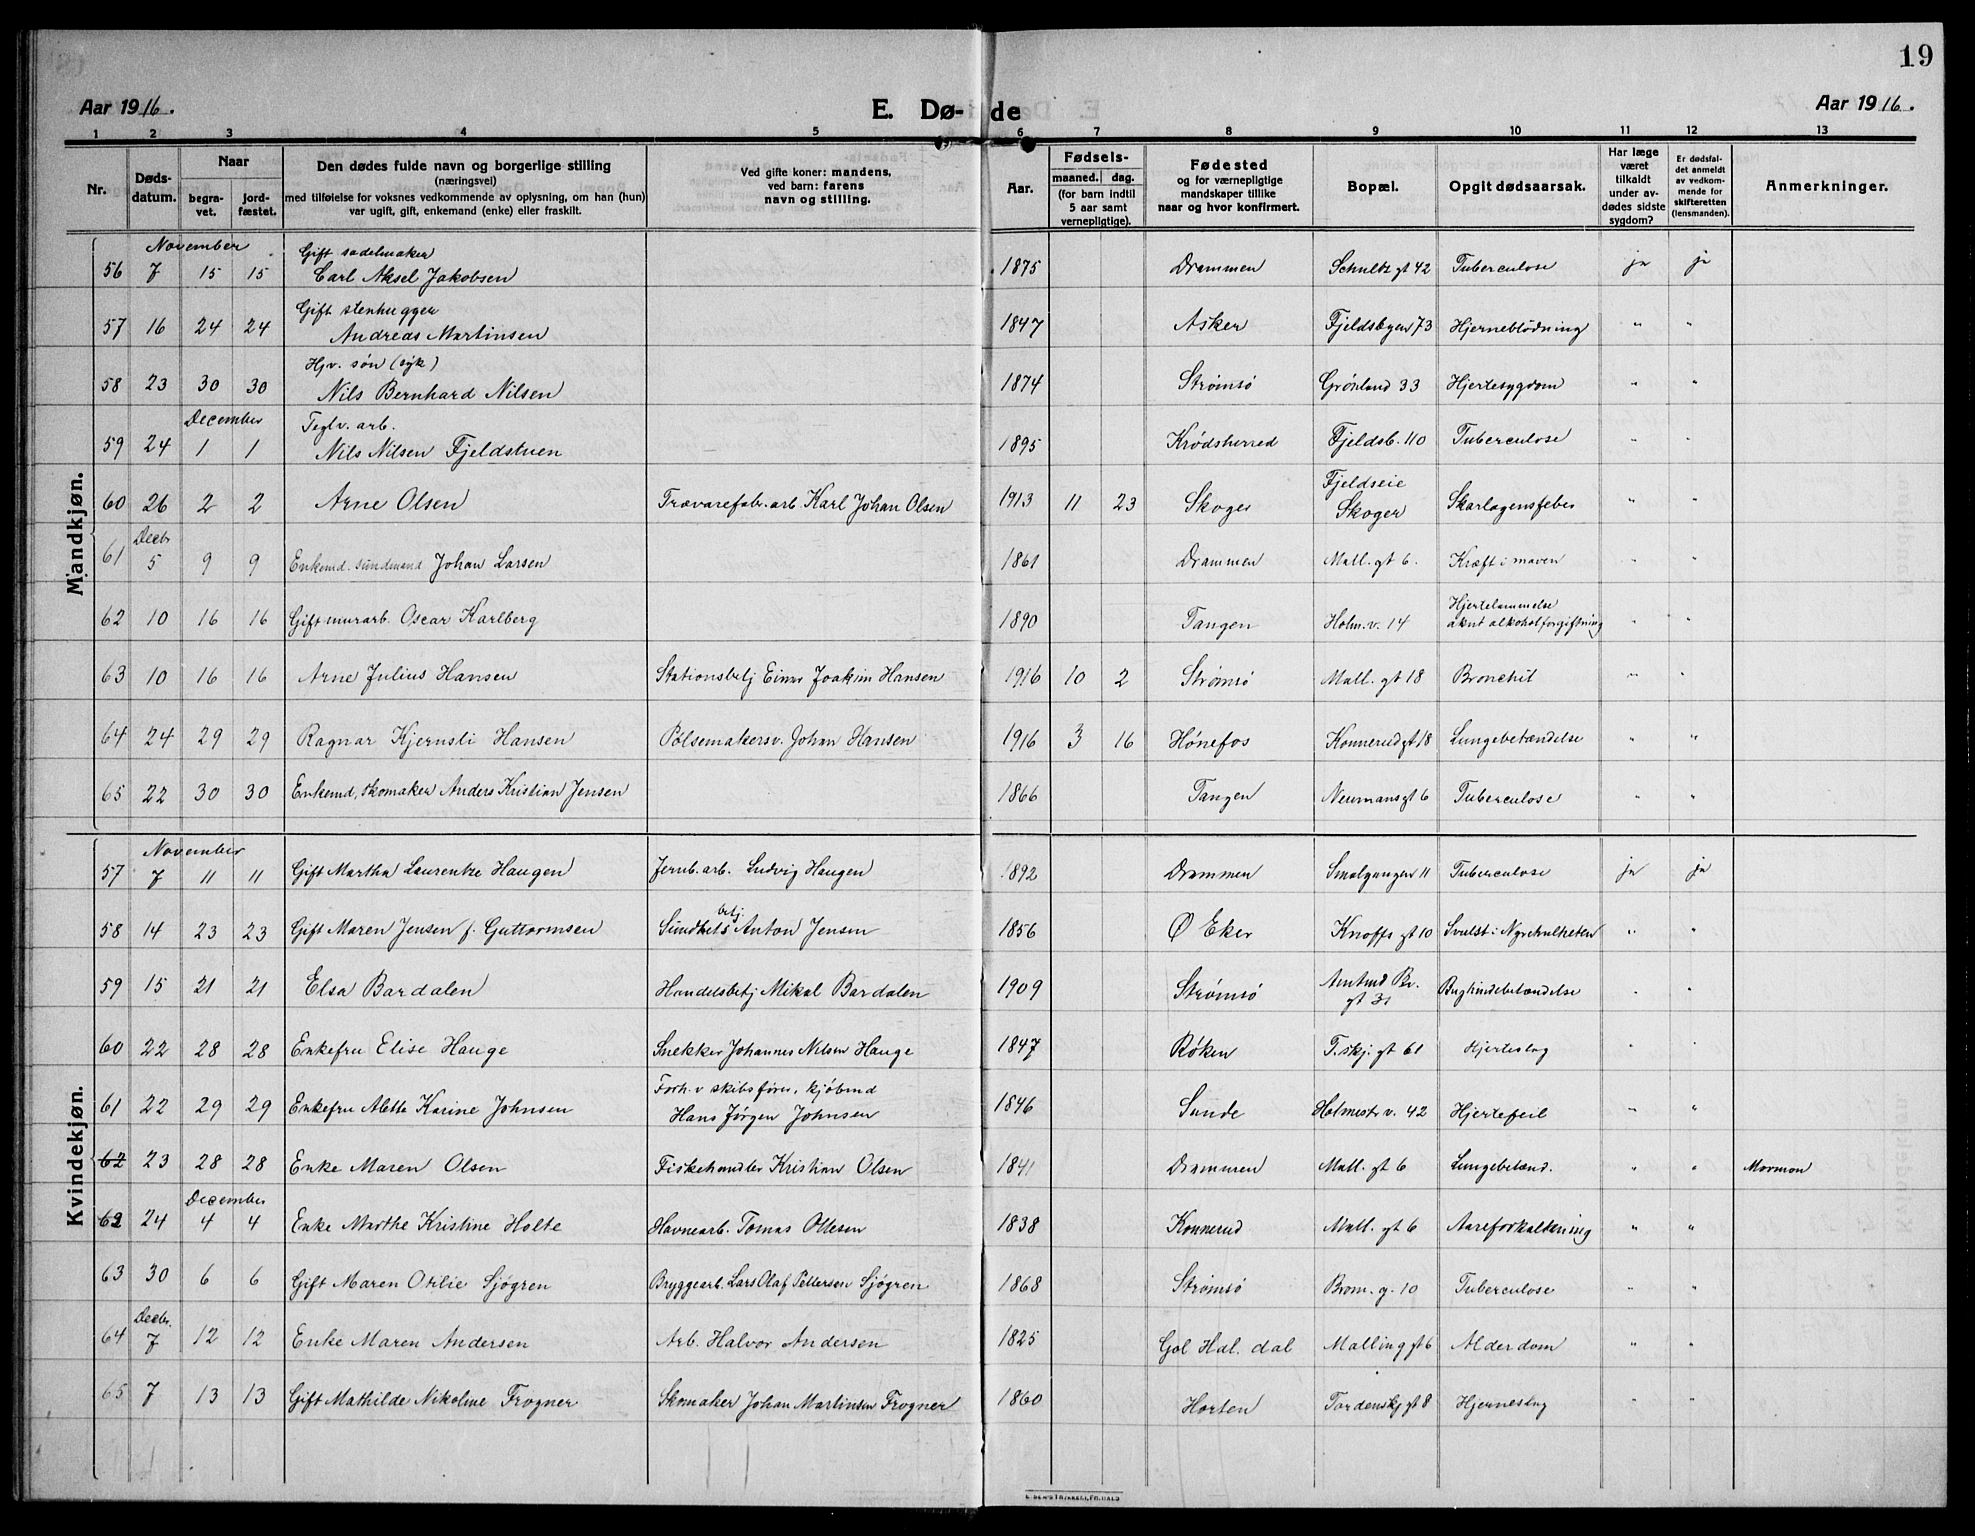 19
Aar 1916. E. Dø- de Aar 1916.
1 2 3 4 5 6 7 8 9 10 11 12 13
Nr. Døds-datum. Naar begra-vet. jord-fæstet. Den dødes fulde navn og borgerlige stilling (næringsvei) med tilføielse for voksnes vedkommende av oplysning, om han (hun) var ugift, gift, enkemand (enke) eller fraskilt. Ved gifte koner: mandens, ved barn: farens navn og stilling. Aar. Fødsels- maaned. dag. (for barn indtil 5 aar samt vernepligtige). Fødested og for værnepligtige mandskaper tillike naar og hvor konfirmert. Bopæl. Opgit dødsaarsak. Har læge været tilkaldt under av-dødes sidste sygdom? Er dødsfal-det anmeldt av vedkom-mende for skifteretten (lensmanden). Anmerkninger.
Mandkjøn.
November Gift sadelmaker
56 7 15 15 Carl Aksel Jakobsen 1875 Drammen Schultz gt 42 Tuberculose ja ja
Gift stenhugger
57 16 24 24 Andreas Martinsen 1847 Asker Fjeldsbyen 73 Hjerneblödning " "
Hjv. søn (syk)
58 23 30 30 Nils Bernhard Nilsen 1874 Strømsø Grønland 33 Hjertesygdom " "
December Teglv. arb.
59 24 1 1 Nils Nilsen Fjeldstuen 1895 Krødsherred Fjeldsb. 110 Tuberculose " "
60 26 2 2 Arne Olsen Trævarefabr. arb. Karl Johan Olsen 1913 11 23 Skoger Fjeldseie Skoger Skarlagensfeber " "
Decbr
61 5 9 9 Enkemd. sundmand Johan Larsen 1861 Drammen Mall. gt 6. Kræft i maven " "
62 10 16 16 Gift murarb. Oscar Karlberg 1890 Tangen Holm. v. 14 Hjertelammelse akut alkoholforgiftning " "
63 10 16 16 Arne Julius Hansen Stationsbetj Einar Joakim Hansen 1916 10 2 Strømsø Mall. gt 18 Bronchit " "
64 24 29 29 Ragnar Kjernsli Hansen Pølsemakersv. Johan Hansen 1916 3 16 Hønefos Konnerud gt 18 Lungebetændelse " "
65 22 30 30 Enkemd, skomaker Anders Kristian Jensen 1866 Tangen Neumans gt 6 Tuberculose " "
Kvindekjøn.
November
57 7 11 11 Gift Martha Laurentze Haugen Jernb. arb. Ludvig Haugen 1892 Drammen Smalgangen 11 Tuberculose ja ja
58 14 23 23 Gift Maren Jensen f. Guttormsen Sundhetsbetj Anton Jensen 1856 Ø Eker Knoffs gt 10 Svulst i " "
59 15 21 21 Elsa Bardalen Handelsbetj Mikal Bardalen 1909 Strømsø Amtmd Bl. gt 31 Bughindebetændelse " "
60 22 28 28 Enkefru Elise Hauge Snekker Johannes Nilsen Hauge 1847 Røken T.skj. gt 61 Hjerteslag " "
Forh. v skibsfører, kjøbmd
61 22 29 29 Enkefru Aletta Karine Johnsen Hans Jørgen Johnsen 1846 Sande Holmestr v. 42 Hjertefeil " "
62 23 28 28 Enke Maren Olsen Fiskehandler Kristian Olsen 1841 Drammen Mall. gt 6 Lungebetænd. " " Mormon
December
62 24 4 4 Enke Marthe Kristine Holte Havnearb. Tomas Ottesen 1838 Konnerud Mall. gt 6 Aareforkalkning " "
63 30 6 6 Gift Maren Otilie Sjögren Bryggearb. Lars Olaf Pettersen Sjögren 1868 Strømsø Brom. g. 10 Tuberculose " "
Decbr.
64 7 12 12 Enke Maren Andersen Arb. Halvor Andersen 1825 Gol Hal. dal Malling gt 6 Alderdom " "
65 7 13 13 Gift Mathilde Nikoline Frogner Skomaker Johan Martinsen Frogner 1860 Horten Tordenskj gt 8 Hjerneslag " "